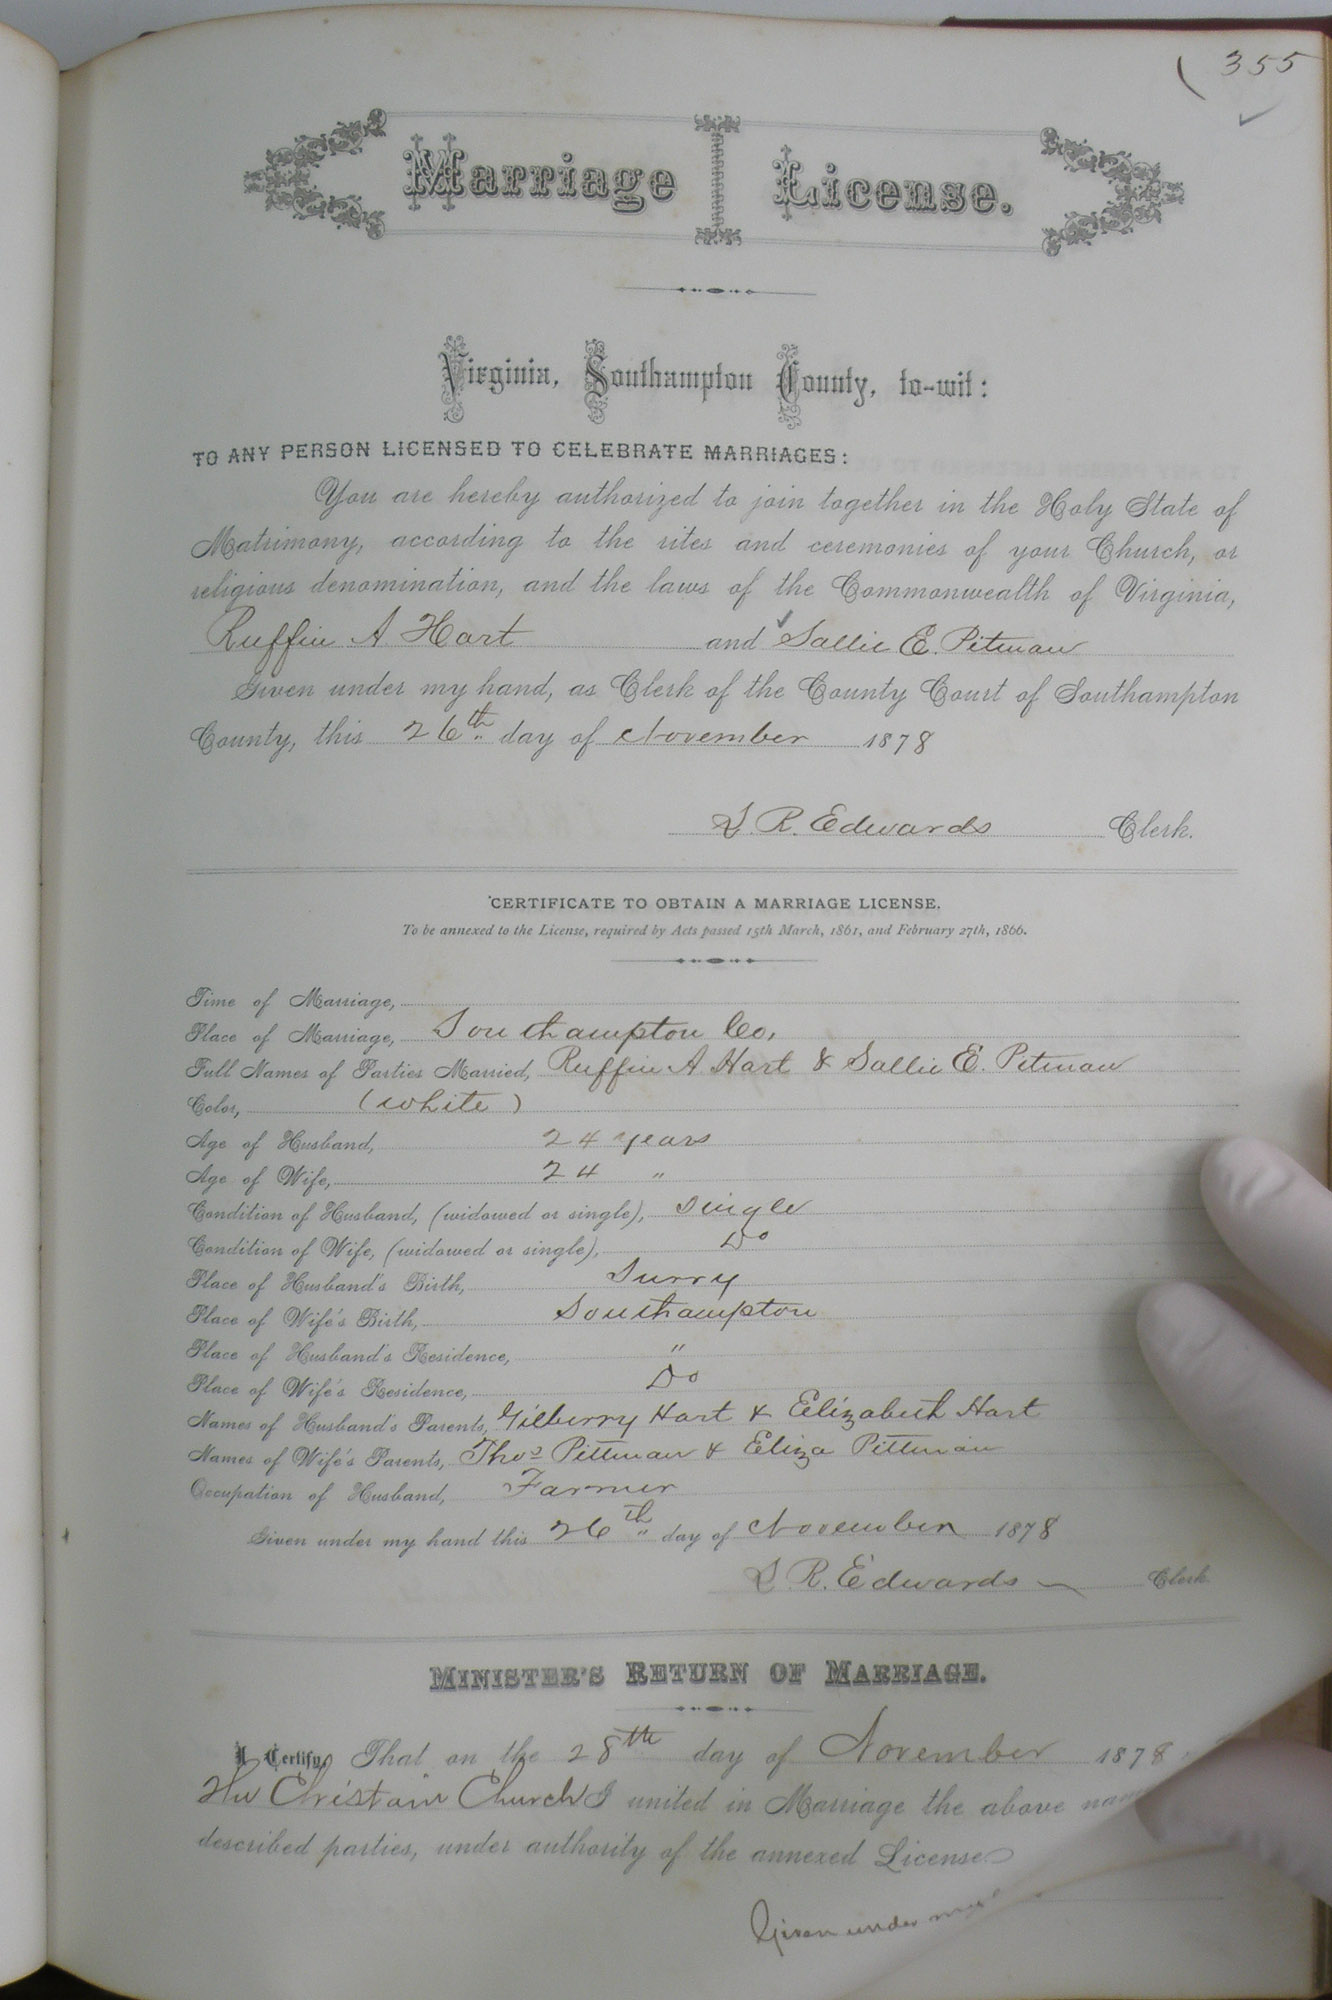 (355
Marriage License.
Virginia, Southampton County, to-wit:
TO ANY PERSON LICENSED TO CELEBRATE MARRIAGES:
You are hereby authorized to join together in the Holy State of
Matrimony, according to the rites and ceremonies of your Church, or
religious denomination, and the laws of the Commonwealth of Virginia,
Ruffin A Hart and Sallie E. Pitman
Given under my hand, as Clerk of the County Court of Southampton
County, this 26th day of November 1878
L. R. Edwards Clerk.
CERTIFICATE TO OBTAIN A MARRIAGE LICENSE.
To be annexed to the License, required by Acts passed 15th March, 1861, and February 27th, 1866.
Time of Marriage,
Place of Marriage, Southampton Co,
Full Names of Parties Married, Ruffin A. Hart & Sallie E. Pitman
Color, (white)
Age of Husband, 24 years
Age of Wife, 24 "
Condition of Husband, (widowed or single), single
Condition of Wife, (widowed or single), Do
Place of Husband's Birth, Surry
Place of Wife's Birth, Southampton
Place of Husband's Residence, "
Place of Wife's Residence, Do
Names of Husband's Parents, Gilberry Hart & Elizabeth Hart
Names of Wife's Parents, Thos Pittman & Eliza Pittman
Occupation of Husband, Farmer
Given under my hand this 26th day of November 1878
L R. Edwards Clerk
MINISTER'S RETURN OF MARRIAGE.
I Certify, That on the 28th day of November 1878
Christain Church I united in Marriage the above
described parties, under authority of the annexed License
Given under my